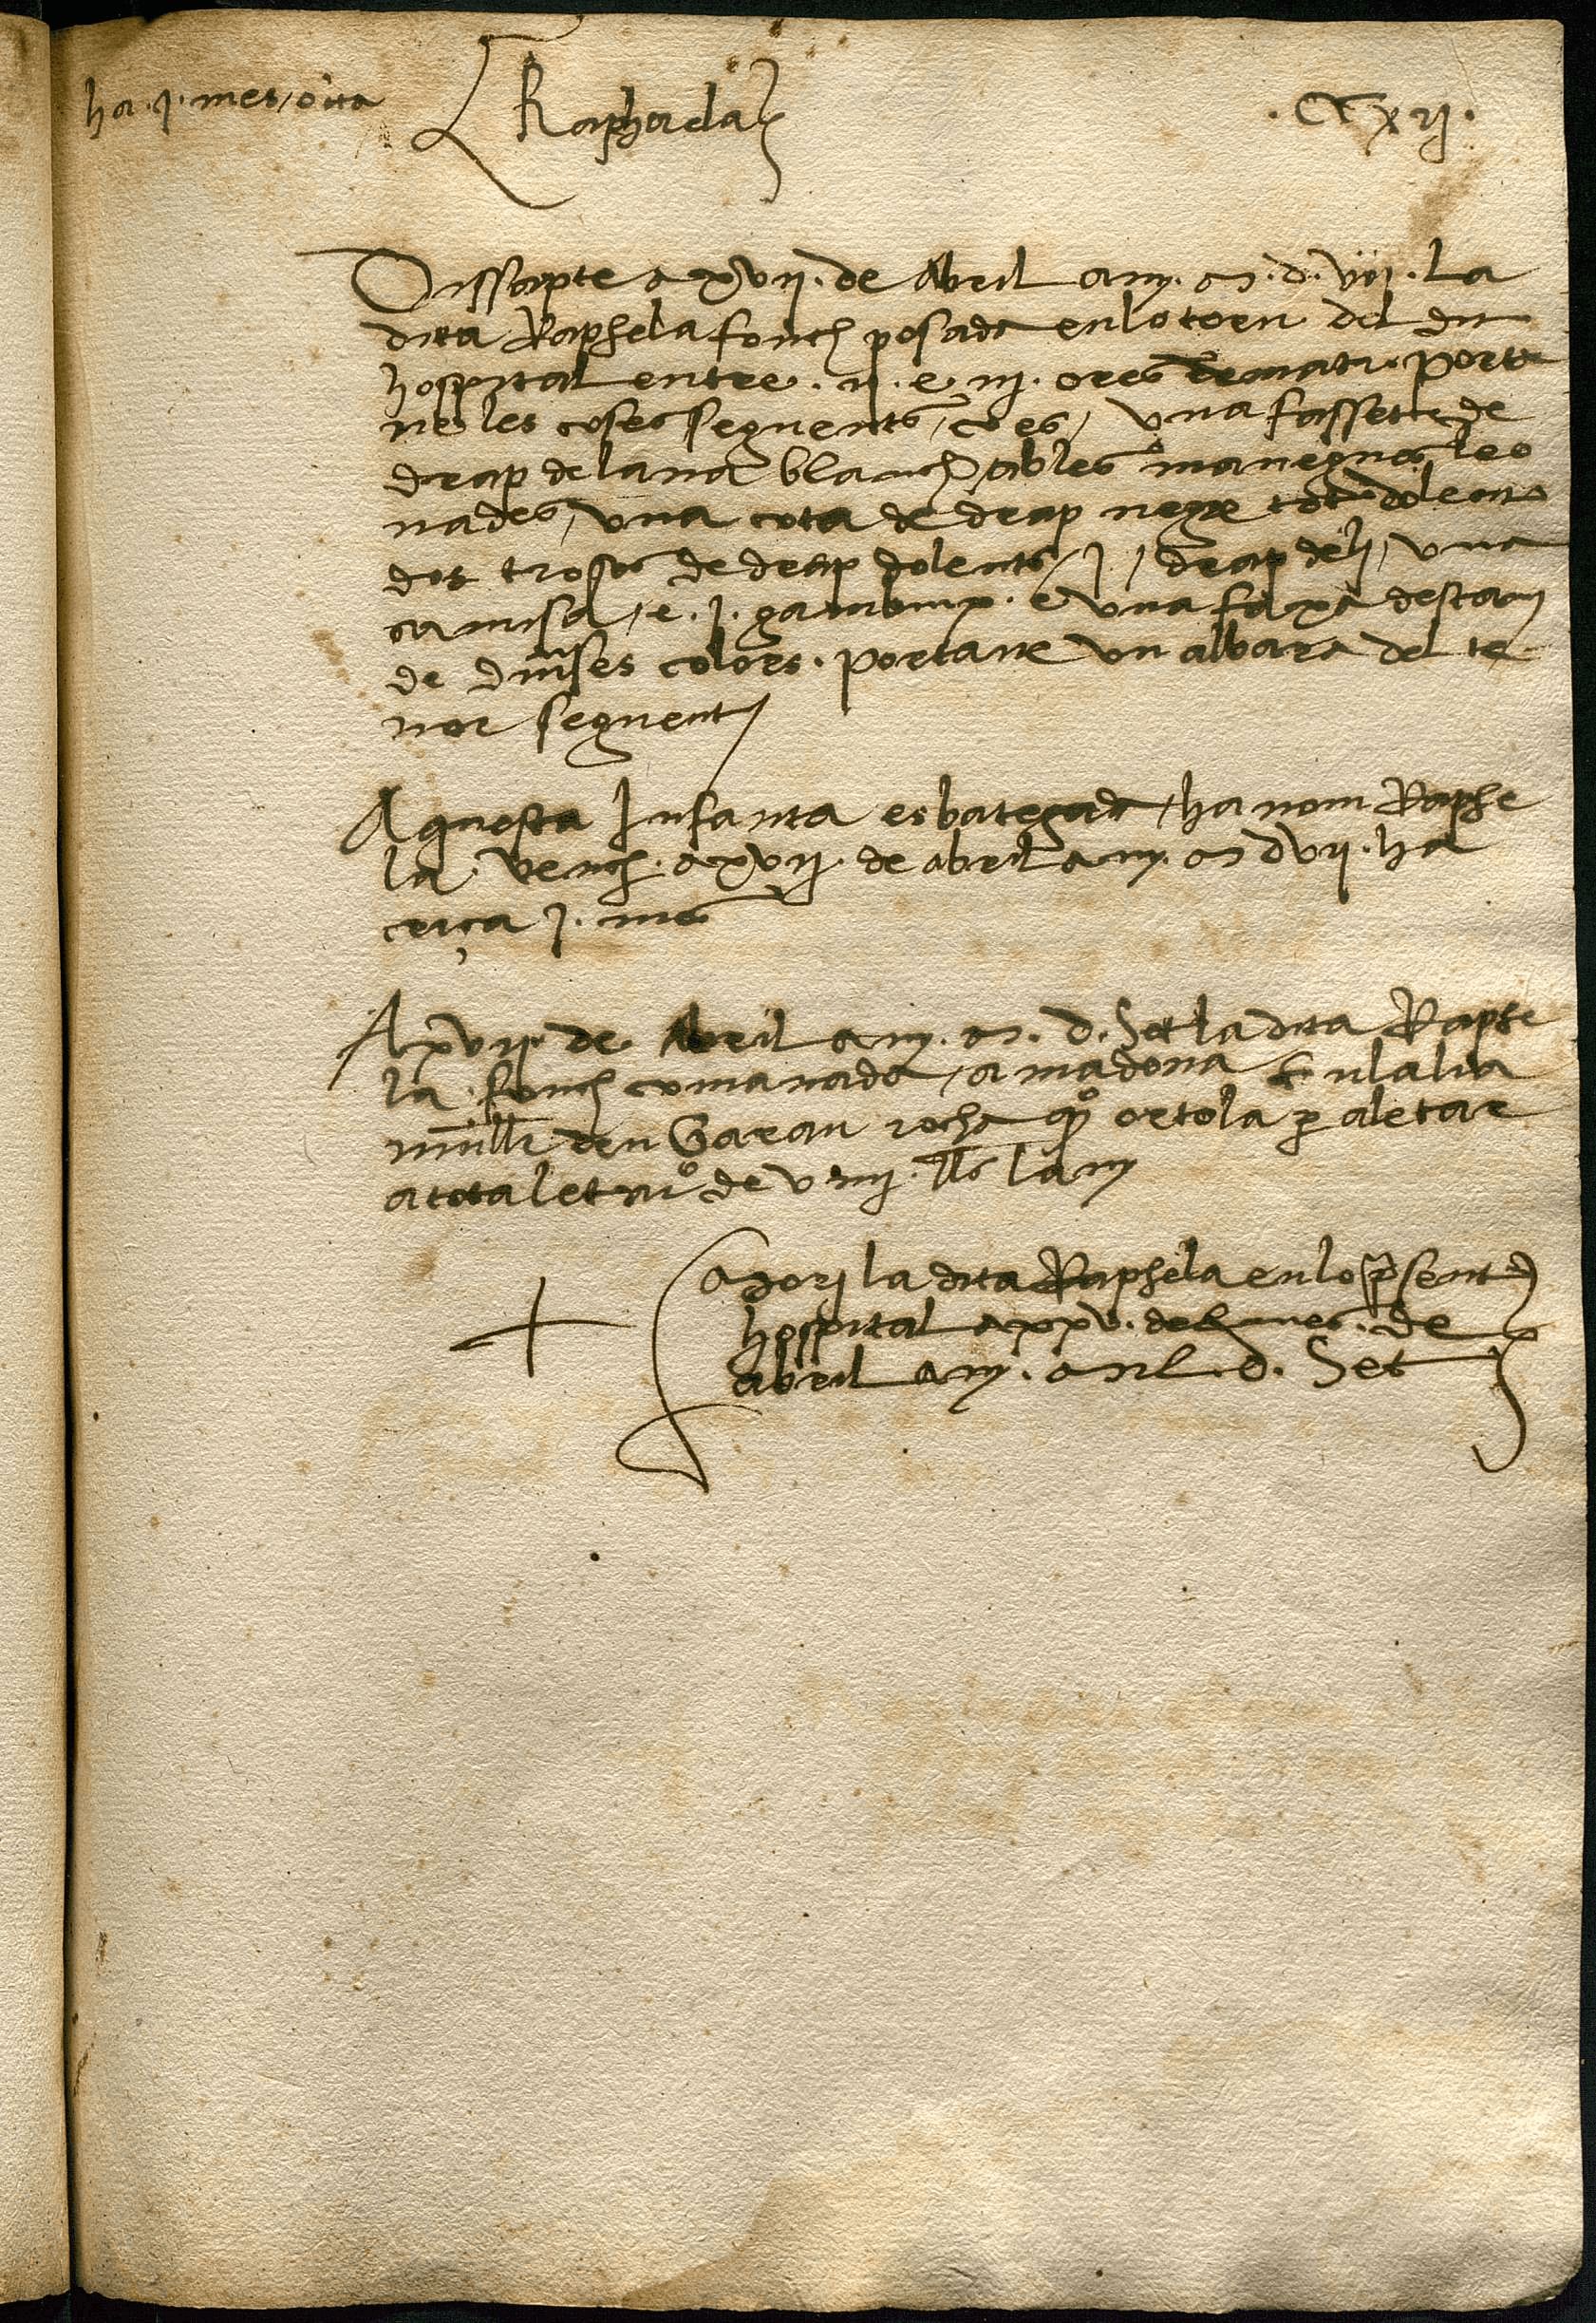 ha .j. mes, dita
Raphaela
.CCxij.
Dissapte a xvij. de Abril any. M. d. vij. La
dita Raphela fonch posada en lo torn del dit
hospital entre .ij. e iij. ores de mati. Porta
ne les coses seguents, ço es, una fassette de
drap de lana blanch, ab les manegues leo
nades, una cota de drap negre tot dolent
dos trosos de drap dolents, j, drap de li, una
camisa, e .j. gambuix. e una faxa destam
de diverses colors. Portave un albara del te
nor seguent
Aquesta Infanta es bategada, ha nom Raphe
la. Vench a xvij. de abril any. M dvij. ha
cerça j. mes
A xvij de Abril any. M. d. Set la dita Raphe
la fonch comanada, a madona Eulalia
mullr den Garau rocha qº ortola p aletar
a tot aletar de viiij. lls lany
Mori la dita Raphela en lo p̃sent
hospital a xxv. del mes. de
abril any. Mil. d. Set